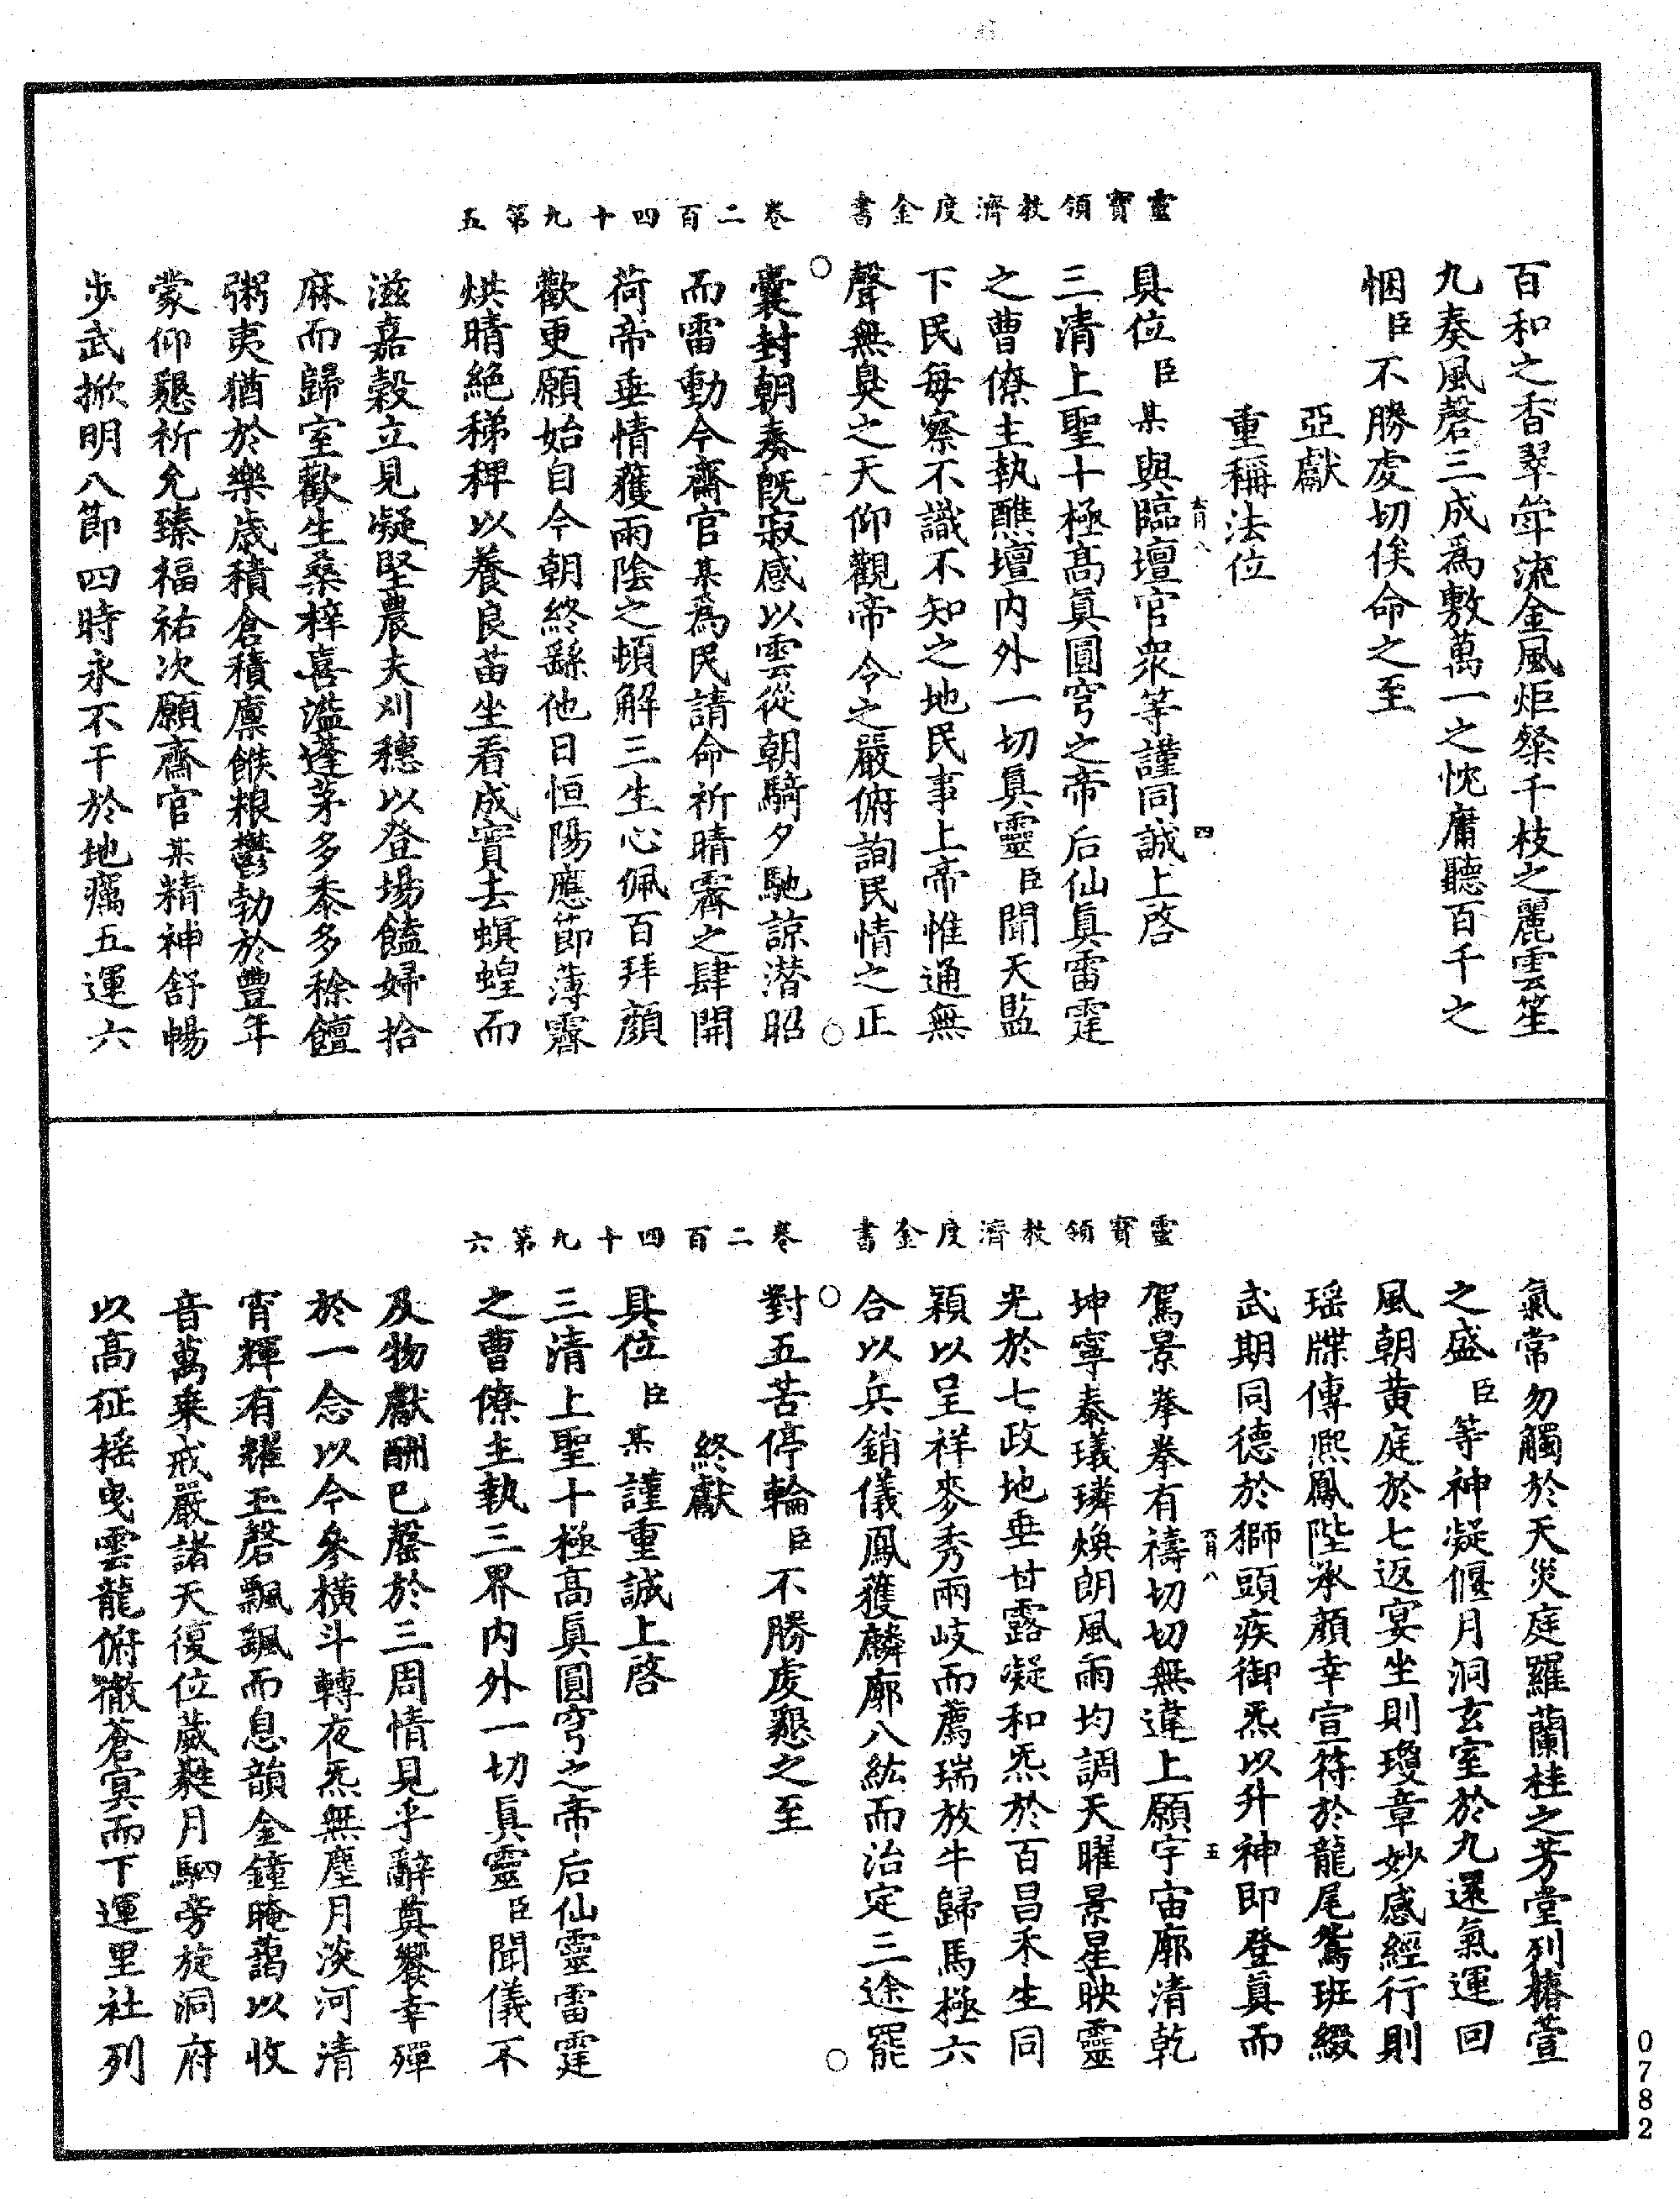 靈寶領教濟度金書　卷二百四十九第五
百和之香翠斝流金風炬粲千枝之麗雲笙
九奏風磬三成爲敷萬一之忱庸聽百千之
悃臣不勝虔切俟命之至
亞獻
重稱法位
具位臣某與臨壇官衆等謹同誠上啓
三清上聖十極高眞圓穹之帝后仙眞雷霆
之曹僚主執醮壇內外一切眞靈臣聞天監
下民每察不識不知之地民事上帝惟通無
聲無臭之天仰觀帝令之嚴俯詢民情之正
囊封朝奏旣寂感以雲從朝騎夕馳諒潛昭
而雷動今齋官某爲民請命祈晴霽之肆開
荷帝垂情獲雨陰之頓解三生心佩百拜顏
歡更願始自今朝終繇他日恒陽應節薄霽
烘晴絕稊稗以養良苗坐看成實去螟蝗而
滋嘉穀立見凝堅農夫刈穗以登場饁婦拾
麻而歸室歡生桑梓喜溢蓬茅多黍多稌饘
粥夷猶於樂歲積倉積廩餱粮鬱勃於豐年
蒙仰懇祈允臻福祐次願齋官某精神舒暢
步武掀明八節四時永不干於地癘五運六
靈寶領教濟度金書　卷二百四十九第六
氣常勿觸於天災庭羅蘭桂之芳堂列椿萱
之盛臣等神凝偃月洞玄室於九還氣運回
風朝黄庭於七返宴坐則瓊章妙感經行則
瑶牒傳熈鳳陛承顏幸宣符於龍尾鴛班綴
武期同德於獅頭疾御炁以升神即登眞而
駕景拳拳有禱切切無違上願宇宙廓清乾
坤寧泰璣璘煥朗風雨均調天曜景星映靈
光於七政地垂甘露凝和炁於百昌禾生同
穎以呈祥麥秀兩岐而薦瑞放牛歸馬極六
合以兵銷儀鳳獲麟廓八紘而治定三途罷
對五苦停輪臣不勝虔懇之至
終獻
具位臣某謹重誠上啓
三清上聖十極高眞圓穹之帝后仙靈雷霆
之曹僚主執三界內外一切眞靈臣聞儀不
及物獻酬巳罄於三周情見乎辭奠饗幸殫
於一念以今參橫斗轉夜炁無塵月淡河清
宵輝有耀玉磬飄颻而息韻金鐘晻藹以收
音萬乗戒嚴諸天復位葳蕤月駟旁旋洞府
以高征摇曳雲龍俯徹蒼冥而下運里社列
0782